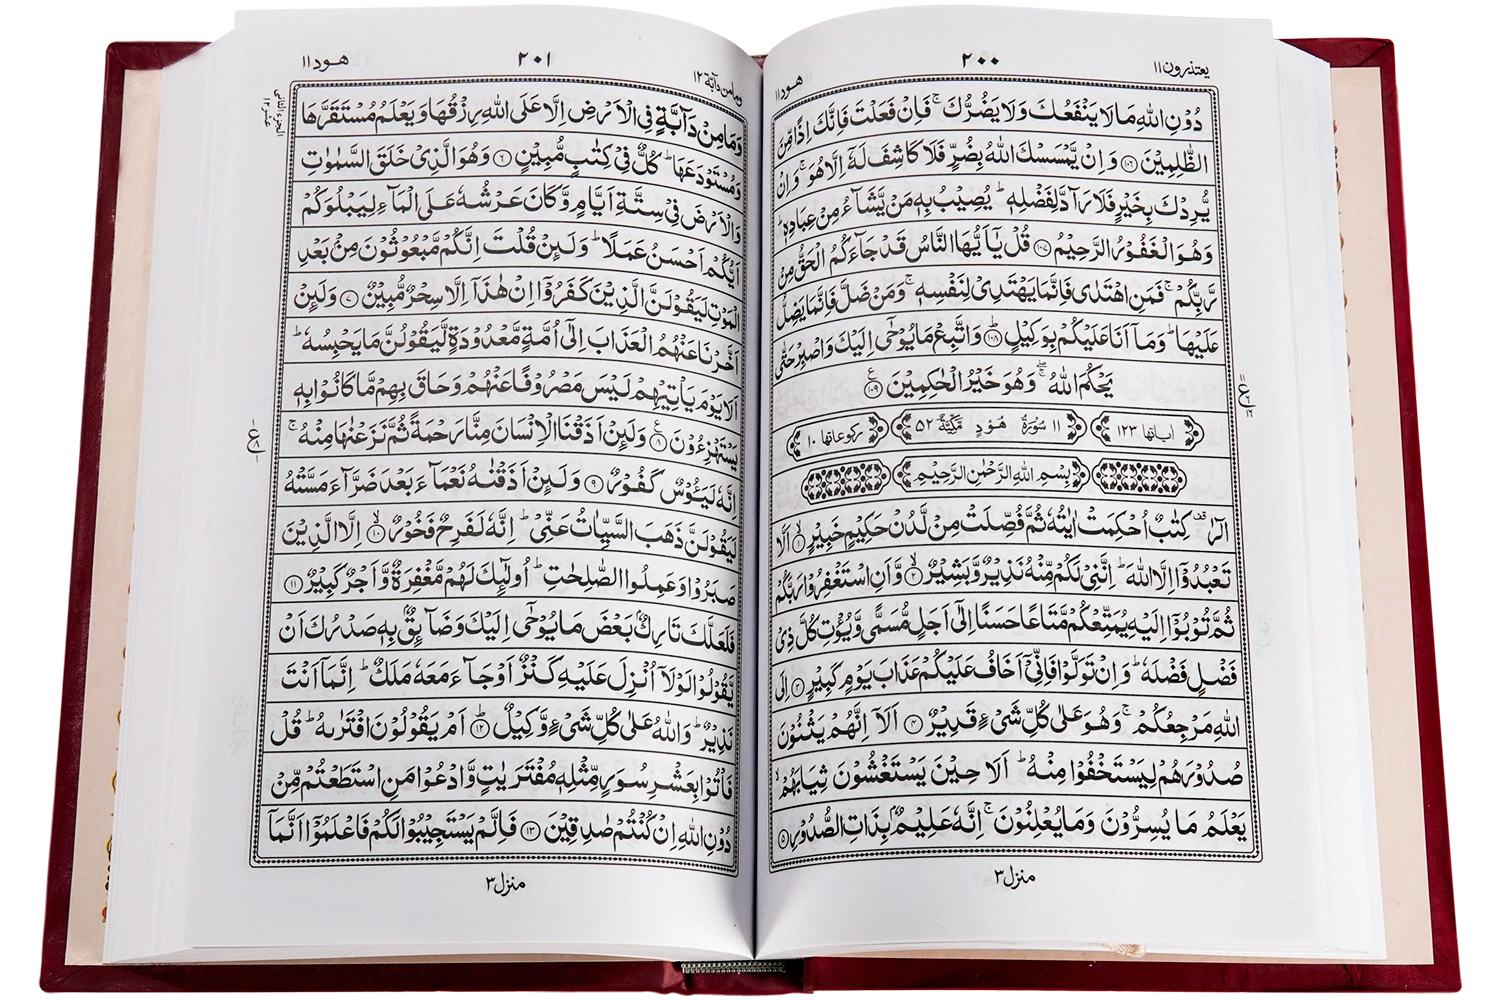 يعتذرون ١١
٢٠٠
هود ١١
دُوۡنِ اللّٰهِ مَا لَا يَنۡفَعُكَ وَلَا يَضُرُّكَ ۚ فَاِنۡ فَعَلۡتَ فَاِنَّكَ اِذًا مِّنَ
الظّٰلِمِيۡنَ ﴿۱۰۶﴾ وَاِنۡ يَّمۡسَسۡكَ اللّٰهُ بِضُرٍّ فَلَا كَاشِفَ لَهٗۤ اِلَّا هُوَ ۚ وَاِنۡ
يُّرِدۡكَ بِخَيۡرٍ فَلَا رَآدَّ لِفَضۡلِهٖ ؕ يُصِيۡبُ بِهٖ مَنۡ يَّشَآءُ مِنۡ عِبَادِهٖ ؕ
وَهُوَ الۡغَفُوۡرُ الرَّحِيۡمُ ﴿۱۰۷﴾ قُلۡ يٰۤاَيُّهَا النَّاسُ قَدۡ جَآءَكُمُ الۡحَقُّ مِنۡ
رَّبِّكُمۡ ۚ فَمَنِ اهۡتَدٰى فَاِنَّمَا يَهۡتَدِىۡ لِنَفۡسِهٖ ۚ وَمَنۡ ضَلَّ فَاِنَّمَا يَضِلُّ
عَلَيۡهَا ؕ وَمَاۤ اَنَا عَلَيۡكُمۡ بِوَكِيۡلٍ ﴿۱۰۸﴾ وَاتَّبِعۡ مَا يُوۡحٰٓى اِلَيۡكَ وَاصۡبِرۡ حَتّٰى
يَحۡكُمَ اللّٰهُ ۖۚ وَهُوَ خَيۡرُ الۡحٰكِمِيۡنَ ﴿۱۰۹﴾
اٰياتها ١٢٣ ١١ سُوۡرَةُ هُوۡدٍ مَّكِّيَّةٌ ٥٢ ركوعاتها ١٠
بِسۡمِ اللّٰهِ الرَّحۡمٰنِ الرَّحِيۡمِ
الٓرٰ كِتٰبٌ اُحۡكِمَتۡ اٰيٰتُهٗ ثُمَّ فُصِّلَتۡ مِنۡ لَّدُنۡ حَكِيۡمٍ خَبِيۡرٍ ﴿۱﴾ اَلَّا
تَعۡبُدُوۡۤا اِلَّا اللّٰهَ ؕ اِنَّنِىۡ لَكُمۡ مِّنۡهُ نَذِيۡرٌ وَّبَشِيۡرٌ ﴿۲﴾ وَّاَنِ اسۡتَغۡفِرُوۡا رَبَّكُمۡ
ثُمَّ تُوۡبُوۡۤا اِلَيۡهِ يُمَتِّعۡكُمۡ مَّتَاعًا حَسَنًا اِلٰٓى اَجَلٍ مُّسَمًّى وَّيُؤۡتِ كُلَّ ذِىۡ
فَضۡلٍ فَضۡلَهٗ ؕ وَاِنۡ تَوَلَّوۡا فَاِنِّىۡۤ اَخَافُ عَلَيۡكُمۡ عَذَابَ يَوۡمٍ كَبِيۡرٍ ﴿۳﴾ اِلَى
اللّٰهِ مَرۡجِعُكُمۡ ۚ وَهُوَ عَلٰى كُلِّ شَىۡءٍ قَدِيۡرٌ ﴿۴﴾ اَلَاۤ اِنَّهُمۡ يَثۡنُوۡنَ
صُدُوۡرَهُمۡ لِيَسۡتَخۡفُوۡا مِنۡهُ ؕ اَلَا حِيۡنَ يَسۡتَغۡشُوۡنَ ثِيَابَهُمۡ ۙ
يَعۡلَمُ مَا يُسِرُّوۡنَ وَمَا يُعۡلِنُوۡنَ ۚ اِنَّهٗ عَلِيۡمٌۢ بِذَاتِ الصُّدُوۡرِ ﴿۵﴾
منزل ٣
ومامن دآبة ١٢
٢٠١
هود ١١
وَمَا مِنۡ دَآبَّةٍ فِى الۡاَرۡضِ اِلَّا عَلَى اللّٰهِ رِزۡقُهَا وَيَعۡلَمُ مُسۡتَقَرَّهَا
وَمُسۡتَوۡدَعَهَا ؕ كُلٌّ فِىۡ كِتٰبٍ مُّبِيۡنٍ ﴿۶﴾ وَهُوَ الَّذِىۡ خَلَقَ السَّمٰوٰتِ
وَالۡاَرۡضَ فِىۡ سِتَّةِ اَيَّامٍ وَّكَانَ عَرۡشُهٗ عَلَى الۡمَآءِ لِيَبۡلُوَكُمۡ
اَيُّكُمۡ اَحۡسَنُ عَمَلًا ؕ وَلَٮِٕنۡ قُلۡتَ اِنَّكُمۡ مَّبۡعُوۡثُوۡنَ مِنۡۢ بَعۡدِ
الۡمَوۡتِ لَيَقُوۡلَنَّ الَّذِيۡنَ كَفَرُوۡۤا اِنۡ هٰذَاۤ اِلَّا سِحۡرٌ مُّبِيۡنٌ ﴿۷﴾ وَلَٮِٕنۡ
اَخَّرۡنَا عَنۡهُمُ الۡعَذَابَ اِلٰٓى اُمَّةٍ مَّعۡدُوۡدَةٍ لَّيَقُوۡلُنَّ مَا يَحۡبِسُهٗ ؕ
اَلَا يَوۡمَ يَاۡتِيۡهِمۡ لَيۡسَ مَصۡرُوۡفًا عَنۡهُمۡ وَحَاقَ بِهِمۡ مَّا كَانُوۡا بِهٖ
يَسۡتَهۡزِءُوۡنَ ﴿۸﴾ وَلَٮِٕنۡ اَذَقۡنَا الۡاِنۡسَانَ مِنَّا رَحۡمَةً ثُمَّ نَزَعۡنٰهَا مِنۡهُ ۚ
اِنَّهٗ لَيَـُٔوۡسٌ كَفُوۡرٌ ﴿۹﴾ وَلَٮِٕنۡ اَذَقۡنٰهُ نَعۡمَآءَ بَعۡدَ ضَرَّآءَ مَسَّتۡهُ
لَيَقُوۡلَنَّ ذَهَبَ السَّيِّاٰتُ عَنِّىۡ ؕ اِنَّهٗ لَفَرِحٌ فَخُوۡرٌ ﴿۱۰﴾ اِلَّا الَّذِيۡنَ
صَبَرُوۡا وَعَمِلُوا الصّٰلِحٰتِ ؕ اُولٰٓٮِٕكَ لَهُمۡ مَّغۡفِرَةٌ وَّاَجۡرٌ كَبِيۡرٌ ﴿۱۱﴾
فَلَعَلَّكَ تَارِكٌۢ بَعۡضَ مَا يُوۡحٰٓى اِلَيۡكَ وَضَآٮِٕقٌۢ بِهٖ صَدۡرُكَ اَنۡ
يَّقُوۡلُوۡا لَوۡلَاۤ اُنۡزِلَ عَلَيۡهِ كَنۡزٌ اَوۡ جَآءَ مَعَهٗ مَلَكٌ ؕ اِنَّمَاۤ اَنۡتَ
نَذِيۡرٌ ؕ وَاللّٰهُ عَلٰى كُلِّ شَىۡءٍ وَّكِيۡلٌ ﴿۱۲﴾ اَمۡ يَقُوۡلُوۡنَ افۡتَرٰٮهُ ؕ قُلۡ
فَاۡتُوۡا بِعَشۡرِ سُوَرٍ مِّثۡلِهٖ مُفۡتَرَيٰتٍ وَّادۡعُوۡا مَنِ اسۡتَطَعۡتُمۡ مِّنۡ
دُوۡنِ اللّٰهِ اِنۡ كُنۡتُمۡ صٰدِقِيۡنَ ﴿۱۳﴾ فَاِلَّمۡ يَسۡتَجِيۡبُوۡا لَكُمۡ فَاعۡلَمُوۡۤا اَنَّمَاۤ
منزل ٣
الجزء الثاني عشر ١٢